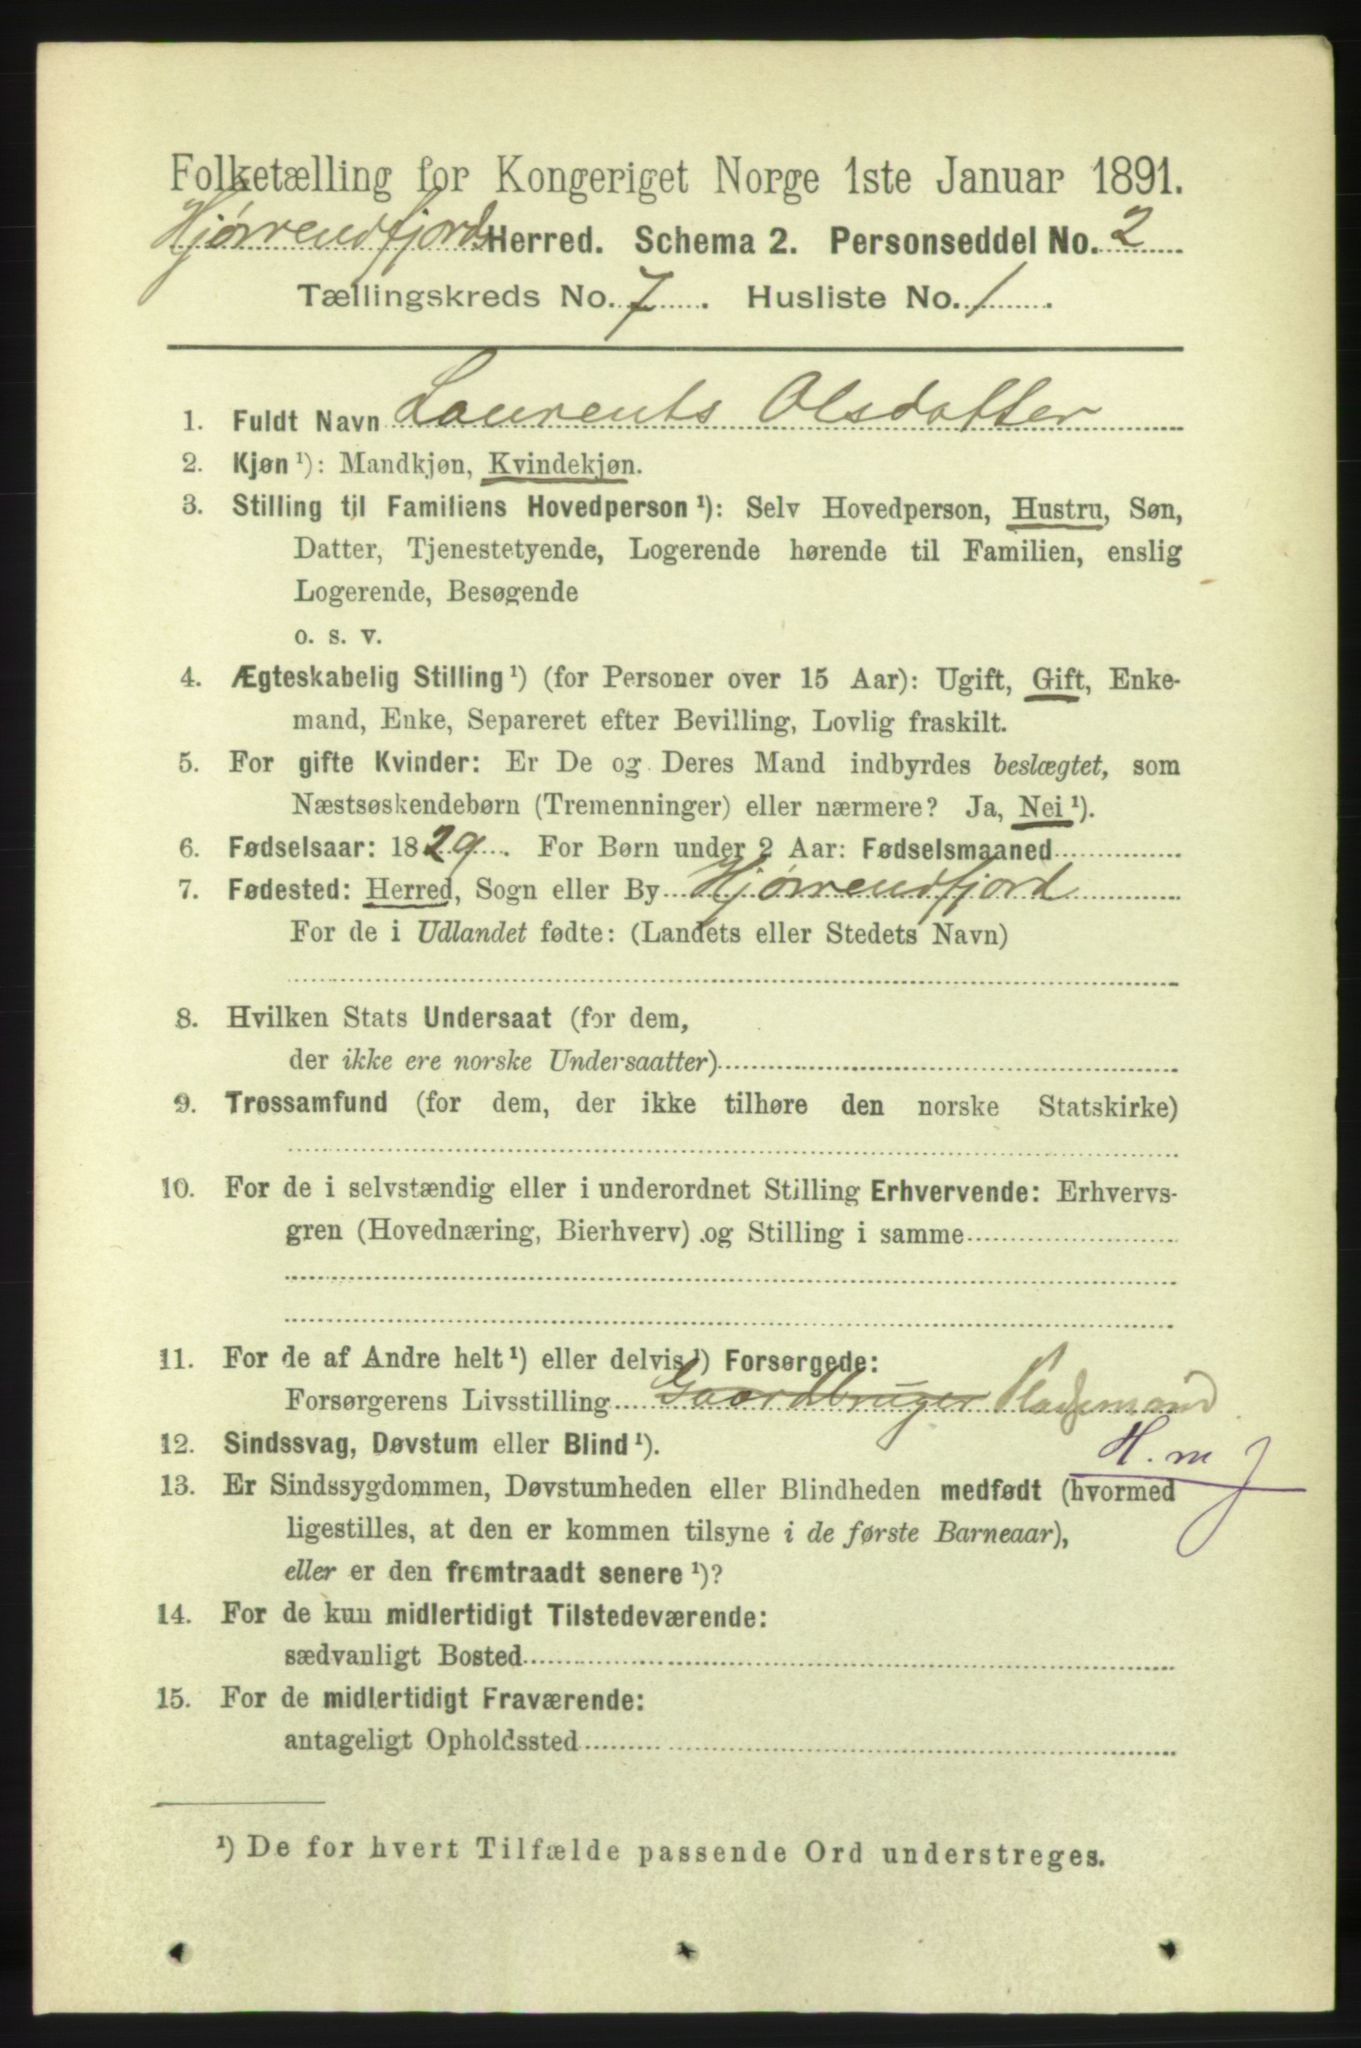 Folketælling for Kongeriget Norge 1ste Januar 1891.
Hjørrendfjords Herred. Schema 2. Personseddel No. 2
Tællingskreds No. 7. Husliste No. 1.
1. Fuldt Navn Laurents Olsdatter
2. Kjøn¹): Mandkjøn, Kvindekjøn.
3. Stilling til Familiens Hovedperson¹): Selv Hovedperson, Hustru, Søn,
Datter, Tjenestetyende, Logerende hørende til Familien, enslig
Logerende, Besøgende
o. s. v.
4. Ægteskabelig Stilling¹) (for Personer over 15 Aar): Ugift, Gift, Enke-
mand, Enke, Separeret efter Bevilling, Lovlig fraskilt.
5. For gifte Kvinder: Er De og Deres Mand indbyrdes beslægtet, som
Næstsøskendebørn (Tremenninger) eller nærmere? Ja, Nei¹).
6. Fødselsaar: 1829. For Børn under 2 Aar: Fødselsmaaned
7. Fødested: Herred, Sogn eller By Hjørrendfjord
For de i Udlandet fødte: (Landets eller Stedets Navn)
8. Hvilken Stats Undersaat (for dem,
der ikke ere norske Undersaatter)
9. Trossamfund (for dem, der ikke tilhøre den norske Statskirke)
10. For de i selvstændig eller i underordnet Stilling Erhvervende: Erhvervs-
gren (Hovednæring, Bierhverv) og Stilling i samme
11. For de af Andre helt¹) eller delvis¹) Forsørgede:
Forsørgerens Livsstilling Gaardbruger Pladsmand
H. m
12. Sindssvag, Døvstum eller Blind¹).
13. Er Sindssygdommen, Døvstumheden eller Blindheden medfødt (hvormed
ligestilles, at den er kommen tilsyne i de første Barneaar),
eller er den fremtraadt senere¹)?
14. For de kun midlertidigt Tilstedeværende:
sædvanligt Bosted
15. For de midlertidigt Fraværende:
antageligt Opholdssted
¹) De for hvert Tilfælde passende Ord understreges.